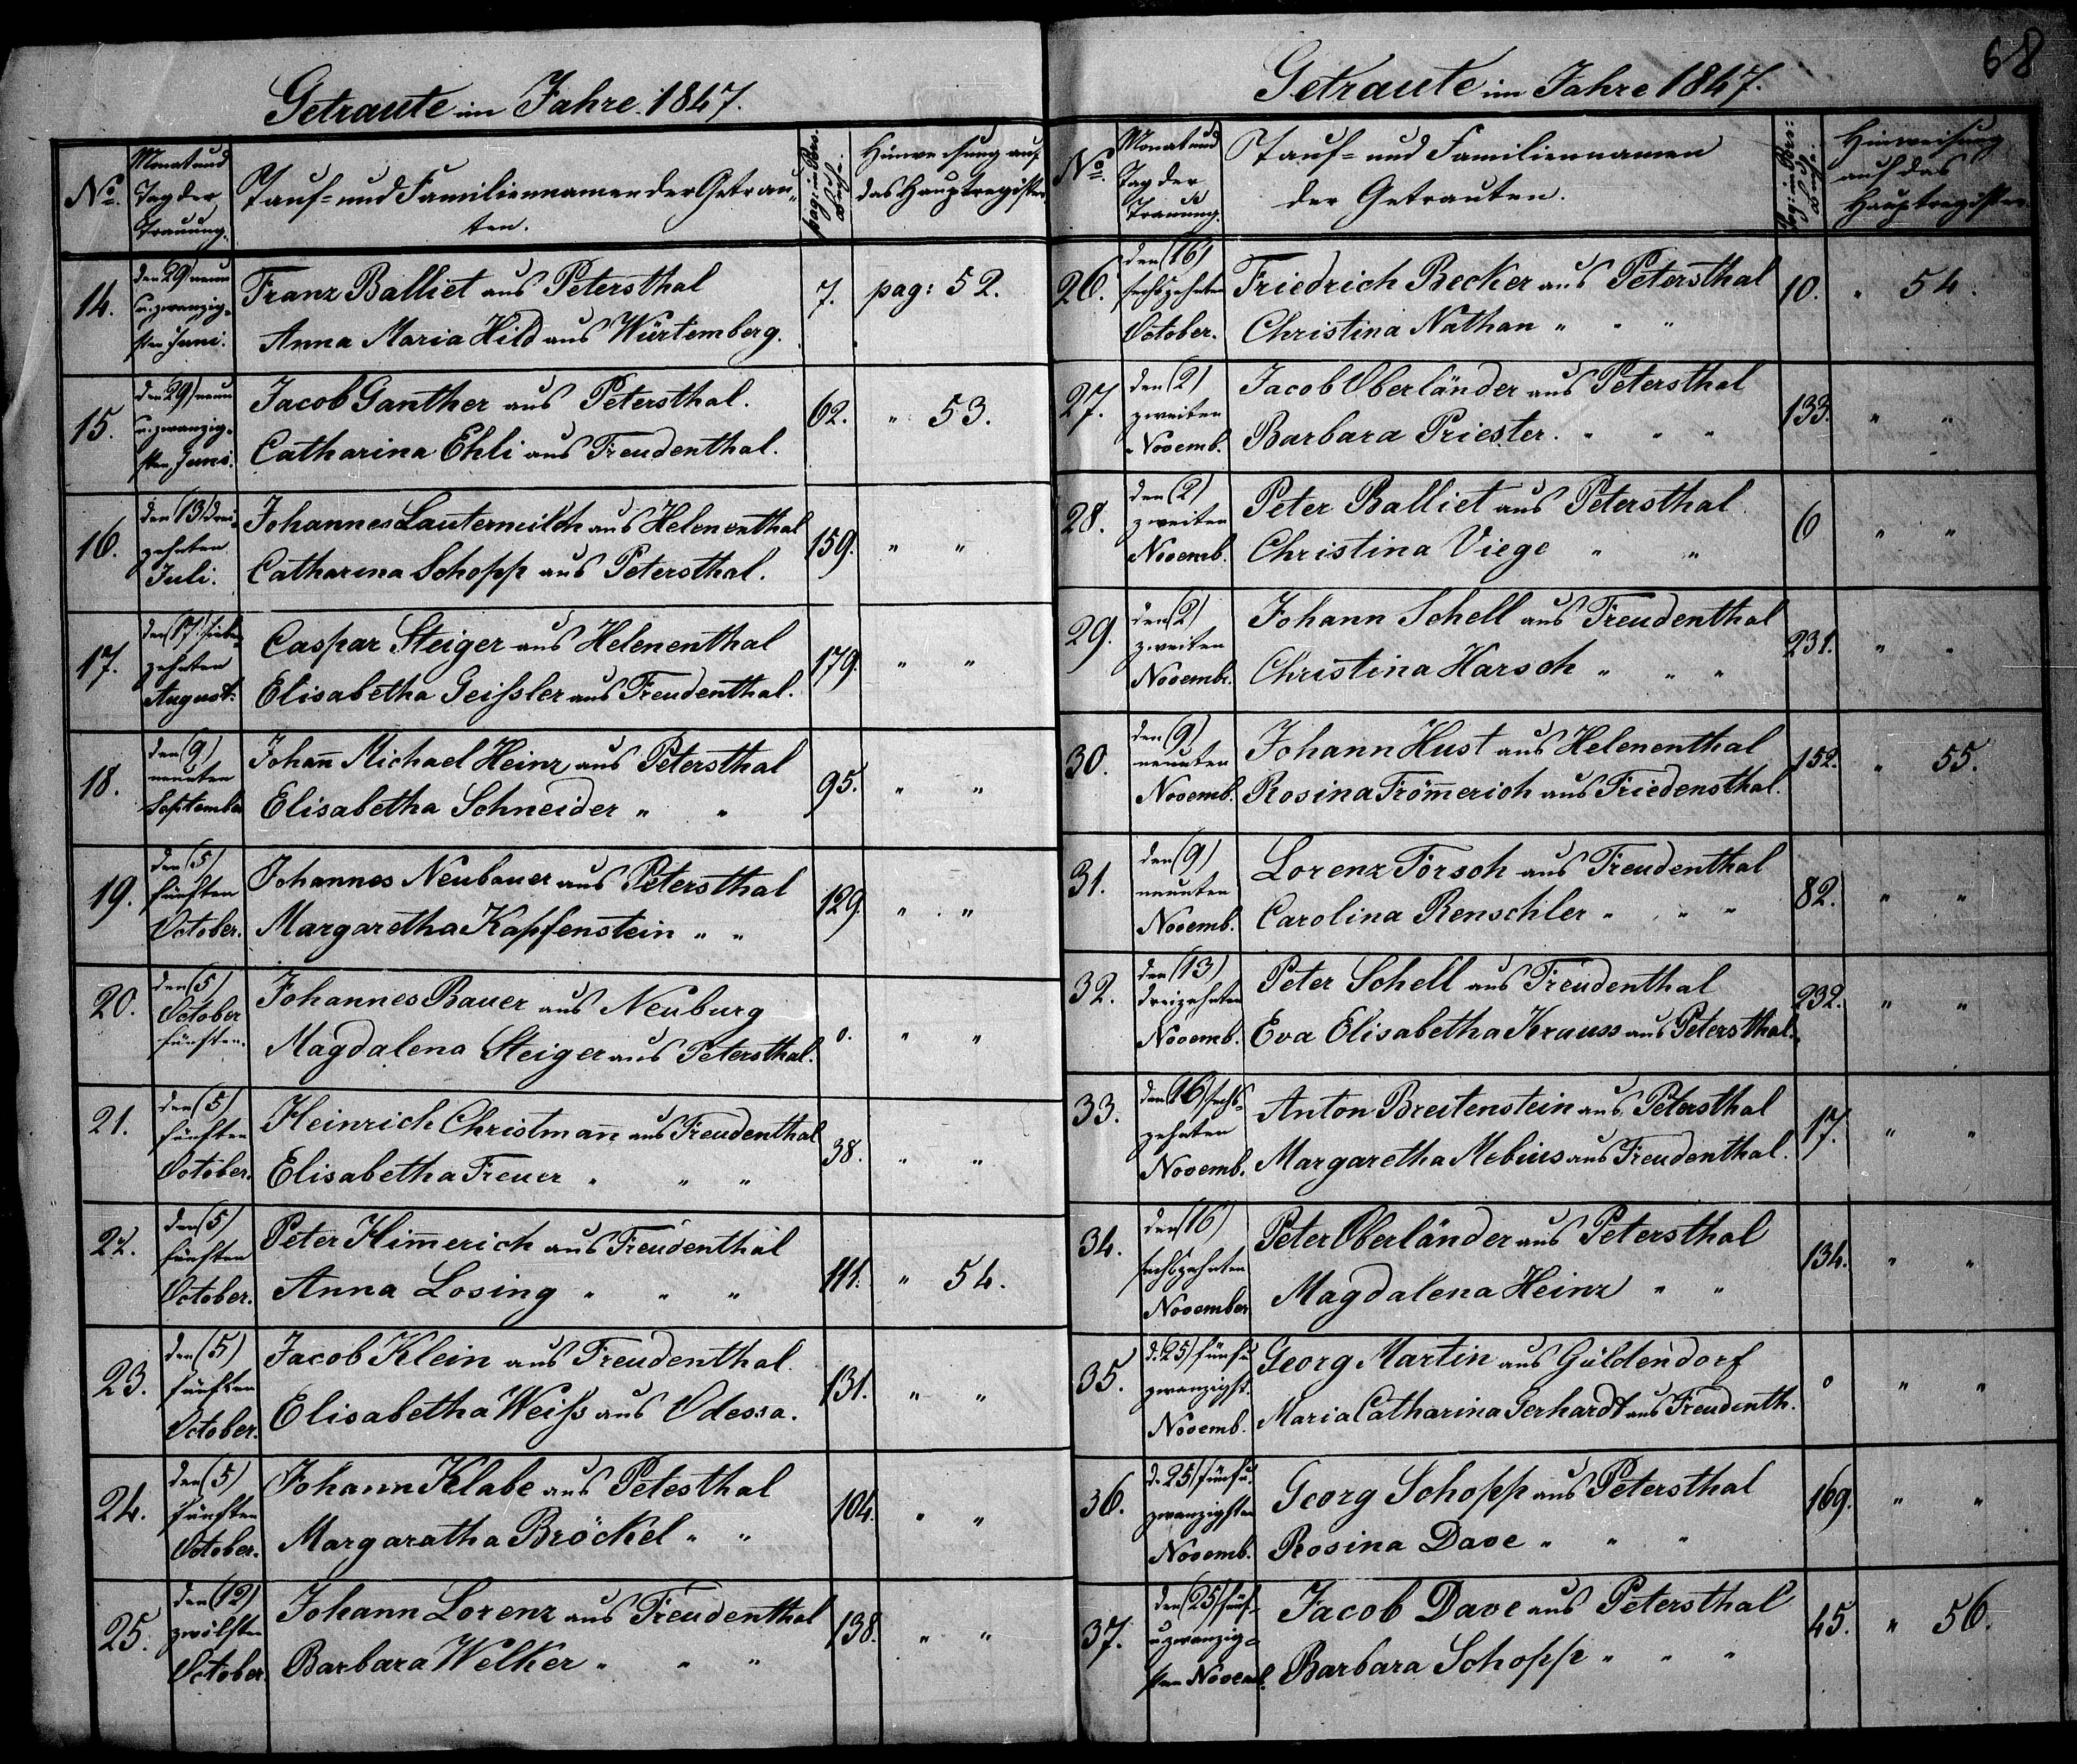 68
Getraute im Jahre 1847.
No. Monat und Tag der Trauung. Tauf- und Familiennamen der Getrau-ten. pag: im Pers. Buch. Hinweisung auf das Hauptregister
14. den 29) neun u. zwanzig-sten Juni. Franz Balliet aus Petersthal 7. pag: 52.
Anna Maria Hild aus Würtemberg.
15. den 29) neun u. zwanzig-sten Juni. Jacob Ganther aus Petersthal. 62. " 53.
Catharina Ehli aus Freudenthal.
16. den (13) drei-zehnten Juli. Johannes Lautermilch aus Helenenthal 159. " "
Catharina Schopp aus Petersthal.
17. den (17) sieben-zehnten August. Caspar Steiger aus Helenenthal 179. " "
Elisabetha Geißler aus Freudenthal.
18. den (9) neunten September Johan̄ Michael Heinz aus Petersthal 95. " "
Elisabetha Schneider " "
19. den (5) fünften October. Johannes Neubauer aus Petersthal 129. " "
Margaretha Kapfenstein " "
20. den (5) October fünften. Johannes Bauer aus Neuburg 0. " "
Magdalena Steiger aus Petersthal.
21. den (5) fünften October. Heinrich Christman̄ aus Freudenthal 38. " "
Elisabetha Freuer " " "
22. den (5) fünften October. Peter Him̄erich aus Freudenthal 111. " 54.
Anna Losing " " "
23. den (5) fünften October. Jacob Klein aus Freudenthal. 131. " "
Elisabetha Weiß aus Odessa.
24. den (5) fünften October. Johann Klabe aus Petesthal 104. " "
Margaratha Bröckel " "
25. den (12) zwölften October. Johann Lorenz aus Freudenthal 138. " "
Barbara Welker " " "
Getraute im Jahre 1847.
No. Monat und Tag der Trauung. Tauf- und Familiennamen der Getrauten. Pag: im Pers: Buch. Hinweisung auf das Hauptregister.
26. den (16) sechszehnten October. Friedrich Becker aus Petersthal 10. " 54.
Christina Nathan " " "
27. den (2) zweiten Novemb. Jacob Oberländer aus Petersthal 133. " "
Barbara Priester. " " "
28. den (2) zweiten Novemb. Peter Balliet aus Petersthal. 6 " "
Christina Viege " "
29. den (2) zweiten Novembr. Johann Schell aus Freudenthal 231. " "
Christina Harsch " " "
30. den (9) neunten Novemb. Johann Hust aus Helenenthal 152. " 55.
Rosina Fröm̄erich aus Friedensthal.
31. den (9) neunten Novemb. Lorenz Forsch aus Freudenthal 82. " "
Carolina Renschler " " "
32. den (13) dreizehnten Novemb. Peter Schell aus Freudenthal 232. " "
Eva Elisabetha Krauss aus Petersthal.
33. den 16) sechs-zehnten Novemb. Anton Breitenstein aus Petersthal 17. " "
Margaretha Mebius aus Freudenthal.
34. den (16) sechszehnten November Peter Oberländer aus Petersthal 134. " "
Magdalena Heinz " "
35. d. 25) fünf u. zwanzigst. Novemb. Georg Martin aus Güldendorf 0 " "
Maria Catharina Gerhardt aus Freudenth.
36. d. 25) fünf u. zwanzigsten Novemb. Georg Schopp aus Petersthal 169. " "
Rosina Dave " " "
37. den (25) fünf-u. zwanzig-sten Novemb. Jacob Dave aus Petersthal 45. " 56.
Barbara Schopp " " "